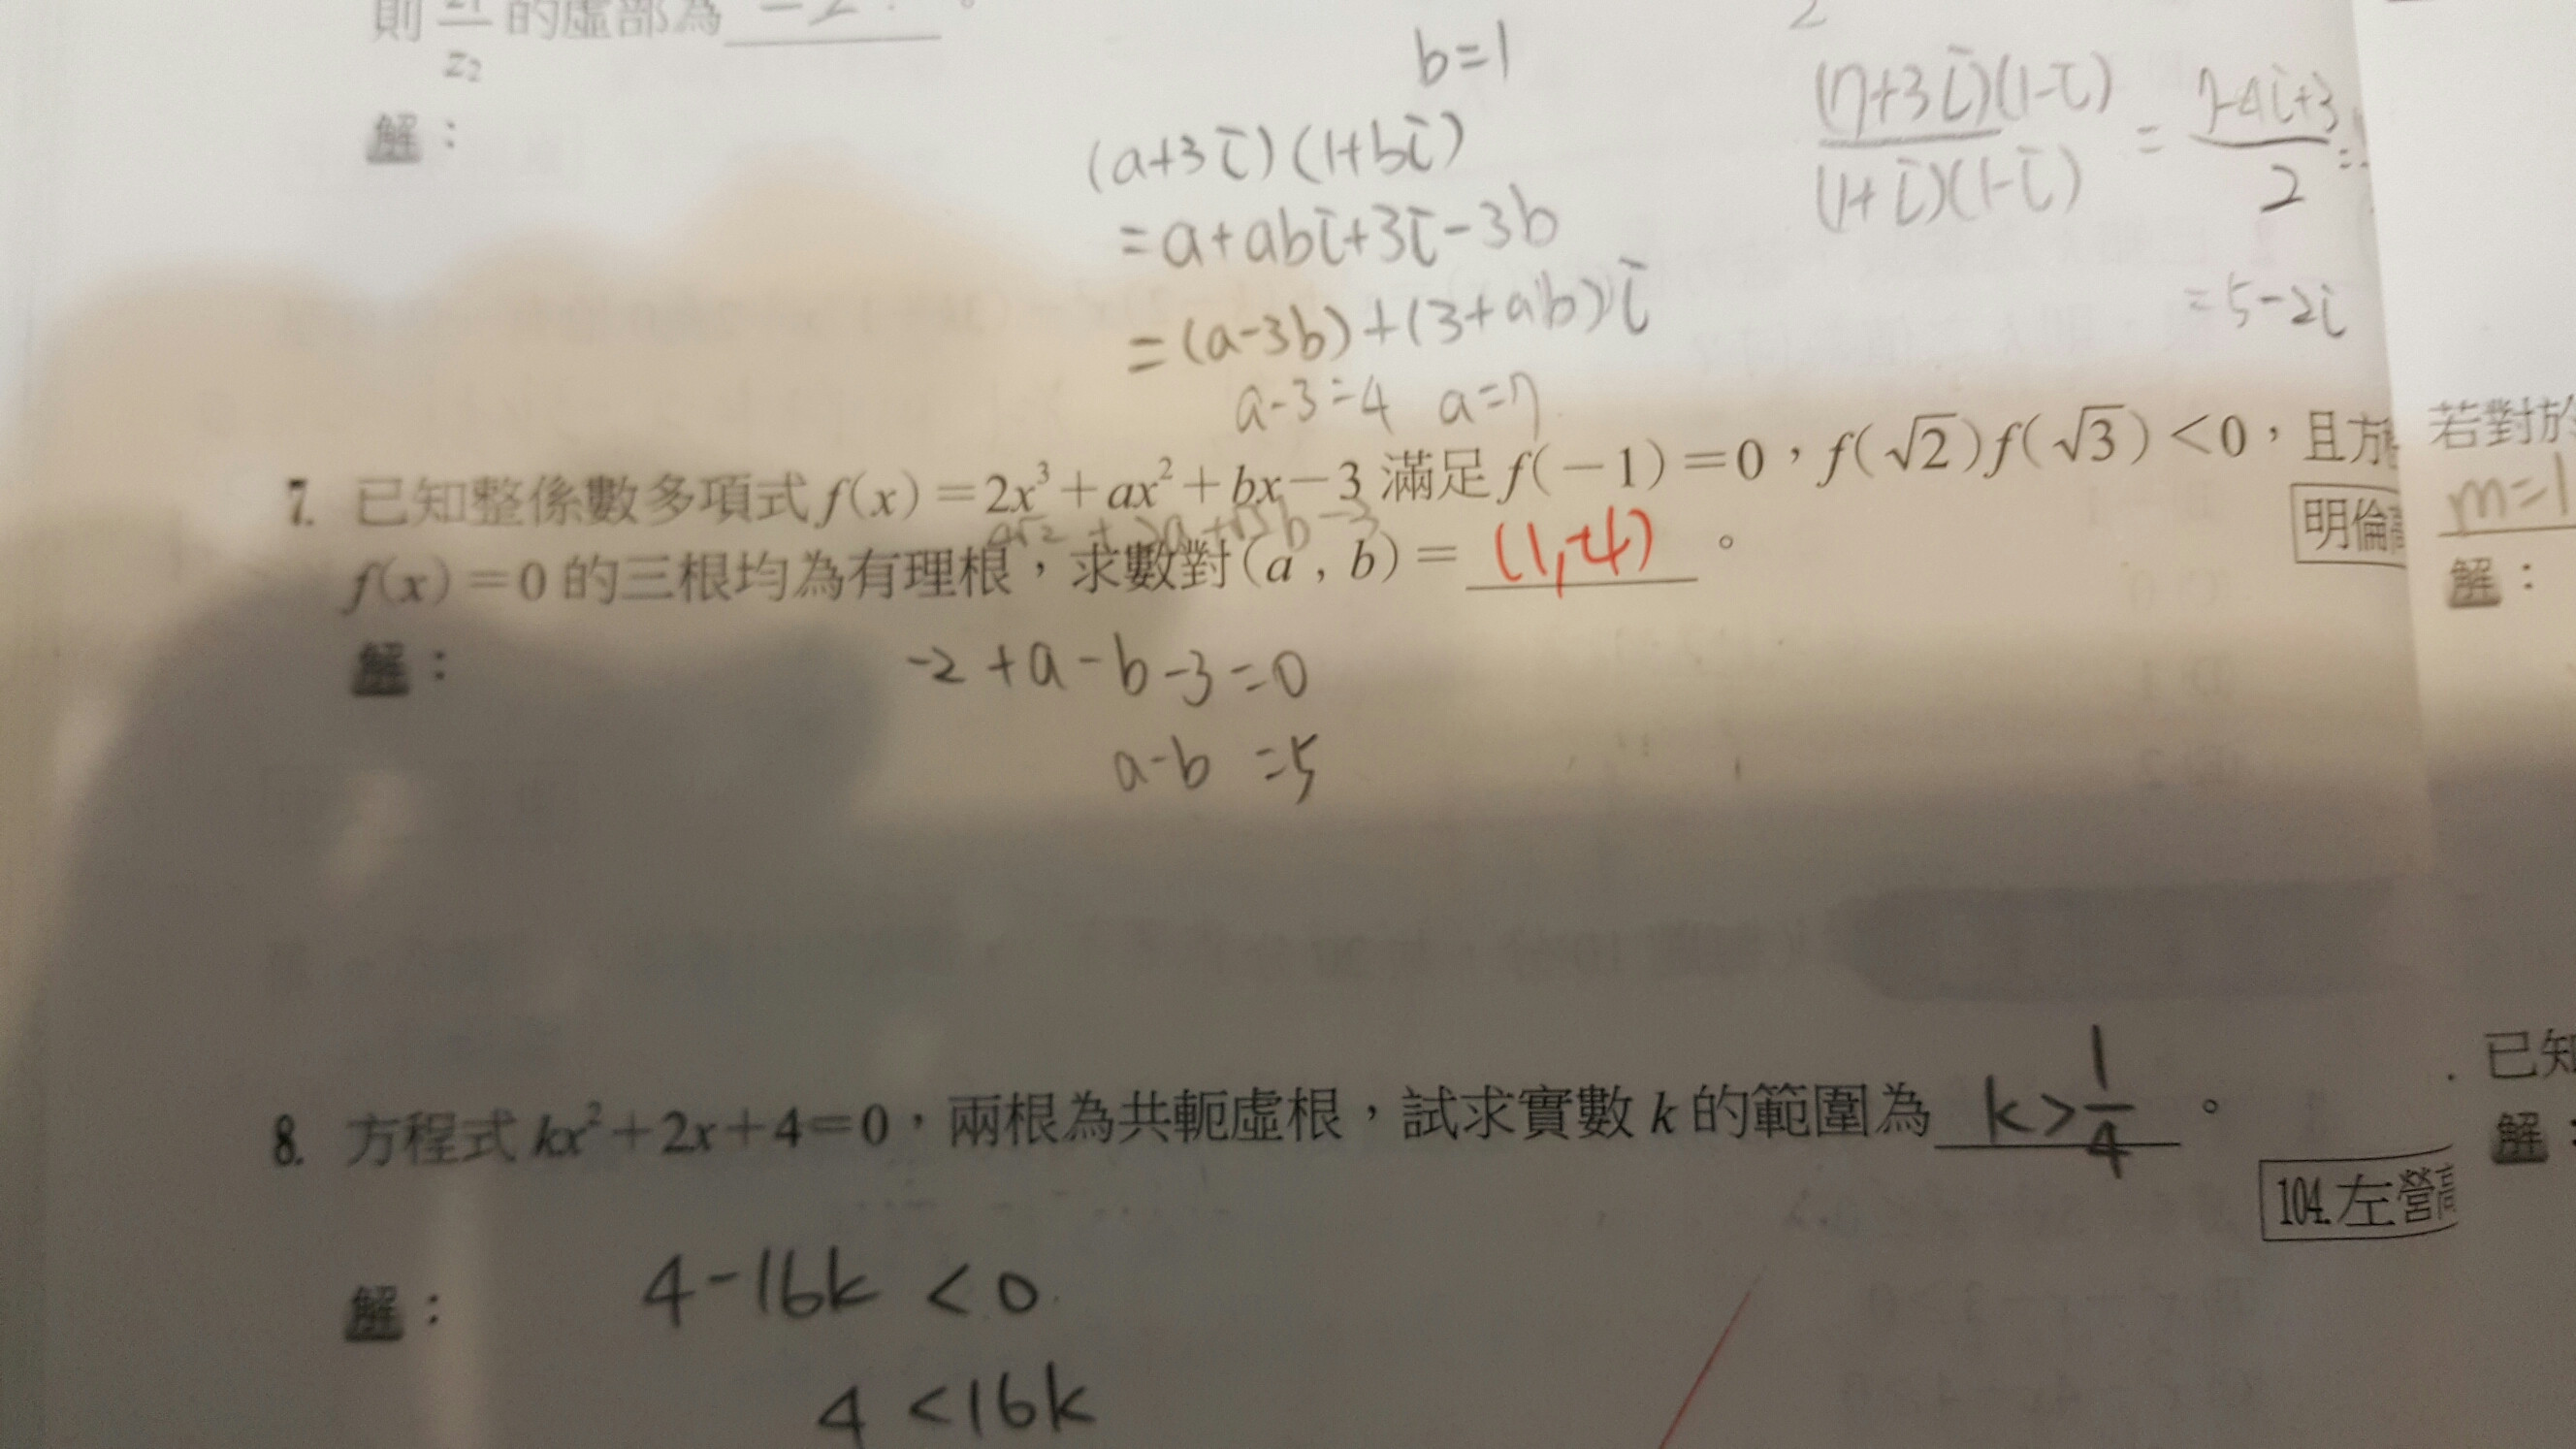 則 z₁/z₂ 的虛部為 -2 。
解：
b=1
(a+3i)(1+bi)
=a+abi+3i-3b
=(a-3b)+(3+ab)i
a-3=4 a=7
2
(7+3i)(1-i)/(1+i)(1-i) = 7-4i+3/2 =
=5-2i
7. 已知整係數多項式 f(x)=2x³+ax²+bx-3 滿足 f(-1)=0，f(√2)f(√3)<0，且方
f(x)=0 的三根均為有理根，求數對(a，b)= (1,-4) 。
明倫高
解：
-2+a-b-3=0
a-b =5
8. 方程式 kx²+2x+4=0，兩根為共軛虛根，試求實數 k 的範圍為 k>1/4 。
104.左營高
解：
4-16k <0
4 <16k
若對於
m=1
解：
已知
解：